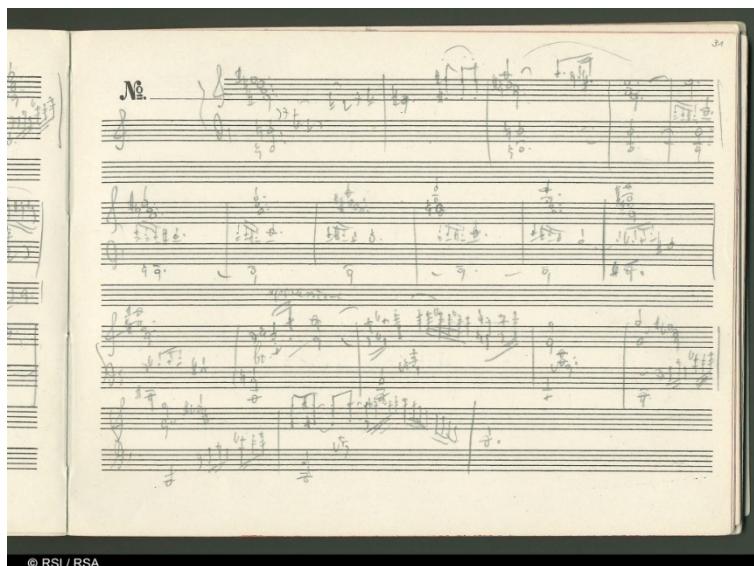 31
No.
© RSI / RSA